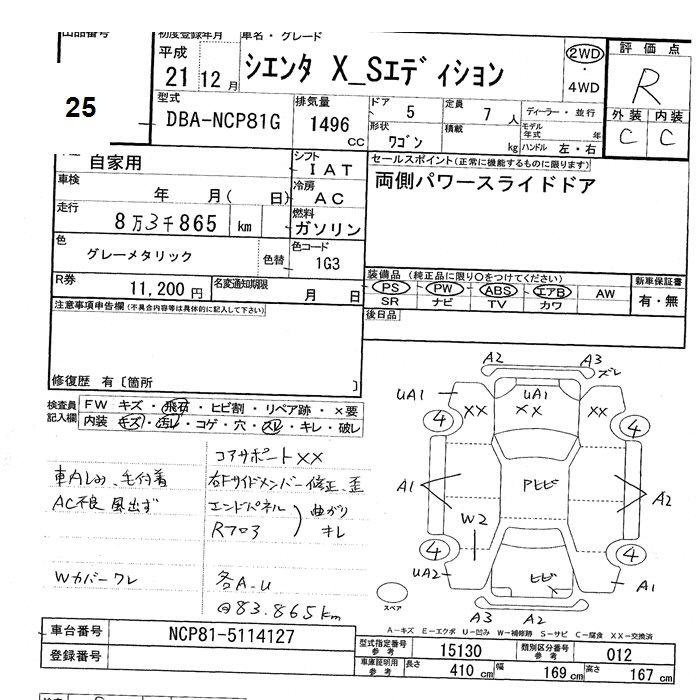 出品番号 初度登録年月 車名・グレード
25
平成 21 12月 シエンタ X_Sエディション 2WD・4WD
評価点 R
外装 内装
C C
型式 DBA-NCP81G 排気量 1496 CC ドア 5 定員 7人 ディーラー・並行
形状 ワゴン 積載 kg モデル年式 年 ハンドル 左・右
自家用 シフト IAT セールスポイント(正常に機能するものに限ります)
車検 年 月( 日) 冷房 AC 両側パワースライドドア
走行 8万3千865 km 燃料 ガソリン
色 グレーメタリック 色替 色コード 1G3
R券 11,200円 名変通知期限 月 日
装備品(純正品に限り○をつけてください) 新車保証書
PS PW ABS エアB AW 有・無
SR ナビ TV カワ
注意事項申告欄(不具合内容等は具体的に記入して下さい) 後日品
修復歴 有〔箇所 〕
検査員記入欄 FW キズ・飛石・ヒビ割・リペア跡・×要
内装 キズ・汚レ・コゲ・穴・スレ・キレ・破レ
コアサポートXX
車内しみ、毛付着 右Fサイドメンバー修正、歪
AC不良 風出ず エンドパネル 曲がり
Rフロア キレ
Wカバーワレ 各A.U
@83.865km
A2 A3 ズレ
UA1 UA1
XX XX XX
4 4
A1 アトヒビ A2
W2
4 4
UA2 ヒビ A1
スペア A3 A2
A-キズ E-エクボ U-凹み W-補修跡 S-サビ C-腐食 XX-交換済
車台番号 NCP81-5114127 型式指定番号 参考 15130 類別区分番号 参考 012
登録番号 車庫証明用 参考 長さ 410 cm 幅 169 cm 高さ 167 cm